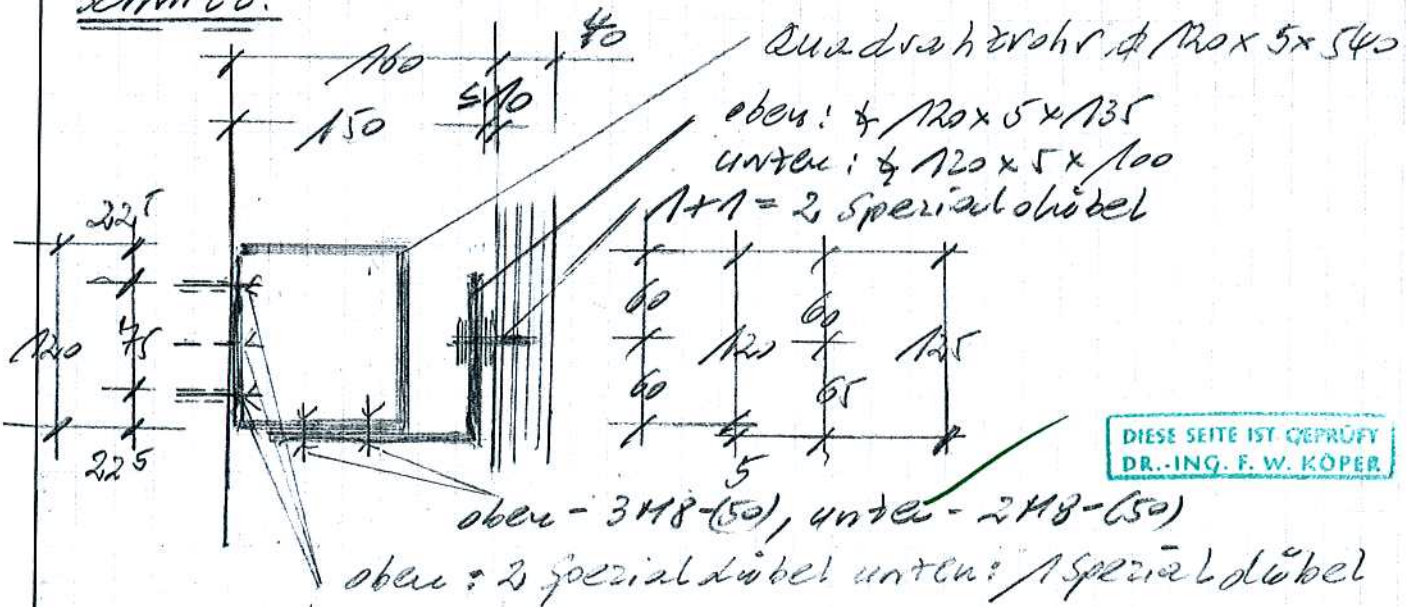 Schnitt:
40
160
Quadrahtrohr ⌀ 120x5x540
≤10
150
oben: ∡ 120x5x135
unten: ∡ 120x5x100
1+1=2 Spezialdübel
22⁵
60
60
120
75
120
125
60
65
22⁵
5
DIESE SEITE IST GEPRÜFT
DR.-ING. F. W. KÖPER
oben - 3M8-(50), unten - 2M8-(50)
oben: 2 Spezialdübel unten: 1 Spezialdübel